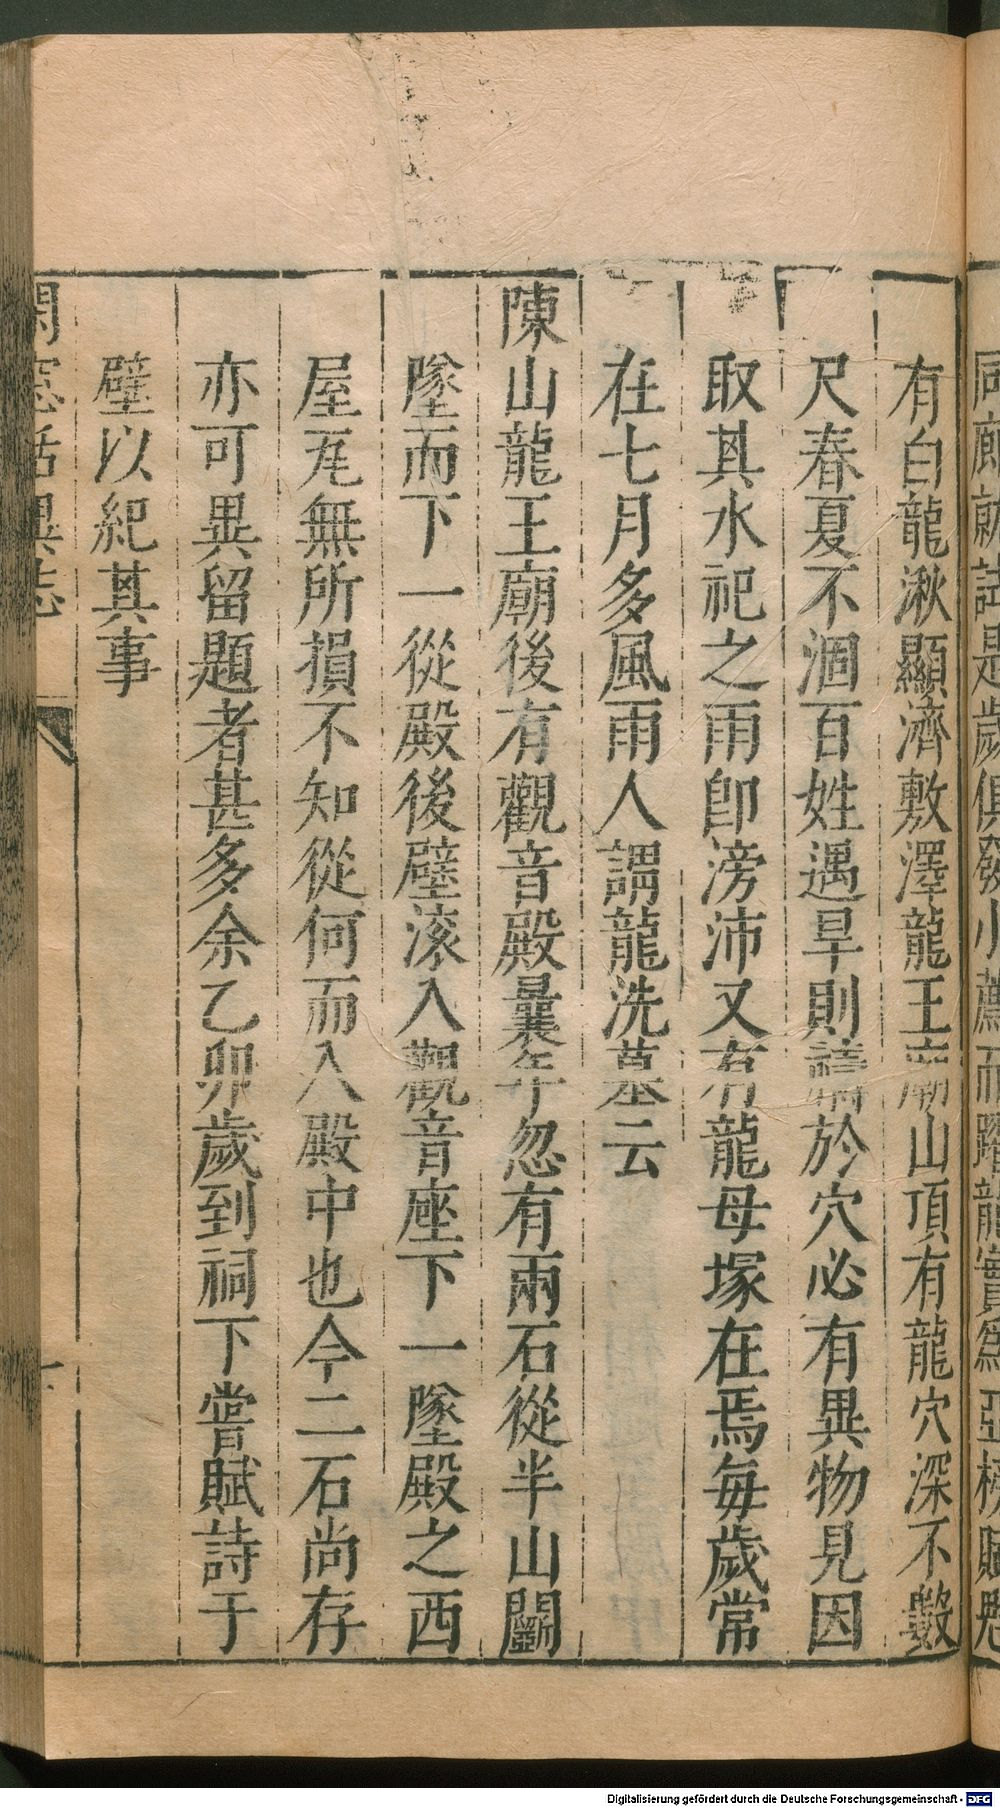 有白龍湫顯濟敷澤龍王廟山頂有龍穴深不數
尺春夏不涸百姓遇旱則禱於穴必有異物見因
取其水祀之雨卽滂沛又有龍母塚在焉每歲常
在七月多風雨人謂龍洗墓云
陳山龍王廟後有觀音殿曩年忽有兩石從半山鬬
墜而下一從殿後壁滚入觀音座下一墜殿之西
屋瓦無所損不知從何而入殿中也今二石尚存
亦可異留題者甚多余乙卯歲到祠下嘗賦詩于
壁以紀其事
閑窓括異志
Digitalisierung gefördert durch die Deutsche Forschungsgemeinschaft - DFG